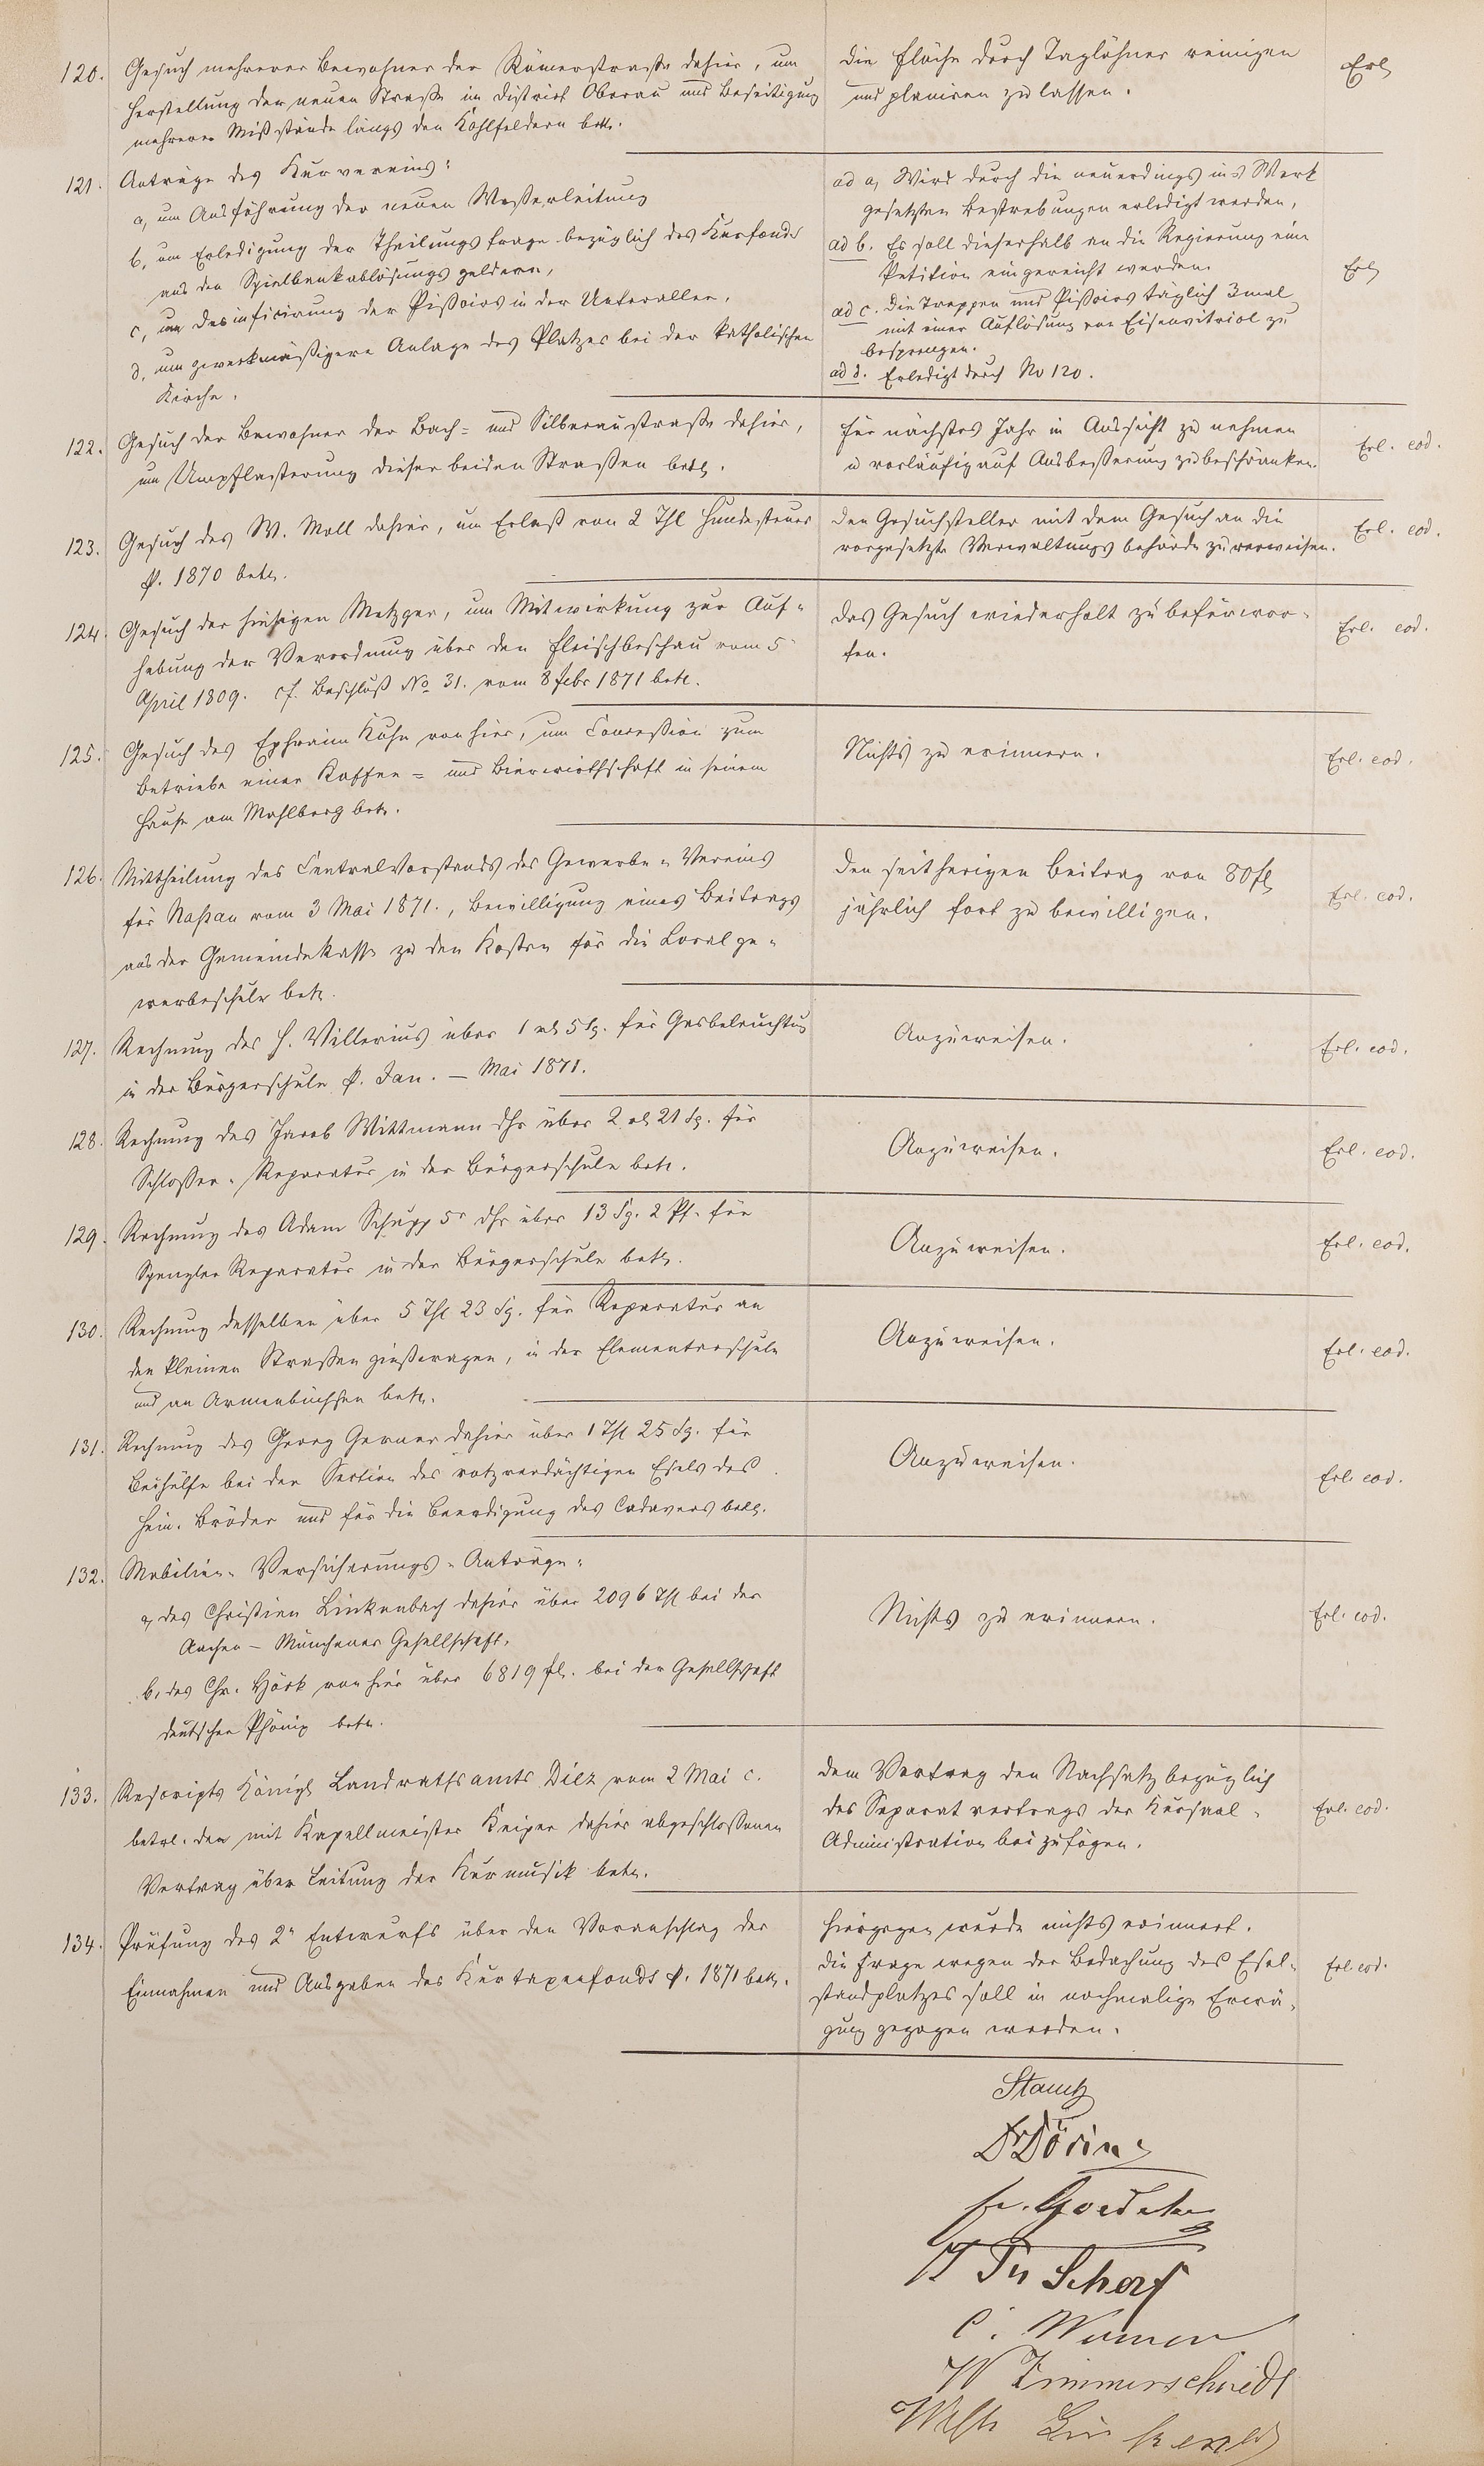 120. Gesuch mehrerer Bewohner der Römerstraße dahier, um
Herstellung der neuen Straße im District Oberau und Beseitigung
mehrerer Mißstände längs den Kohlfeldern betr.
die Fläche durch Taglöhner reinigen
und planiren zu lassen.
Erl
121. Anträge des Kurvereins:
a, um Ausführung der neuen Wasserleitung
b, um Erledigung der Theilungsfrage bezüglich des Kurfonds
aus den Spielbankablösungsgeldern,
c, um Desinficirung der Pissoirs in der Unterallee,
d, um zweckmäßigere Anlage des Platzes bei der katholischen
Kirche.
ad a, Wird durch die neuerdings in's Werk
gesetzten Bestrebungen erledigt werden,
ad b. Es soll dieserhalb an die Regierung eine
Petition eingereicht werden.
ad c. Die Treppen und Pissoirs täglich 3mal
mit einer Auflösung von Eisenvitriol zu
besprengen.
ad d. Erledigt durch No 120.
Erl
122. Gesuch der Bewohner der Bach- und Silberaustraße dahier,
um Umpflasterung dieser beiden Straßen betr.
für nächstes Jahr in Aussicht zu nehmen
u vorläufig auf Ausbesserung zu beschränken.
Erl. eod.
123. Gesuch des W. Moll dahier, um Erlaß von 2 Thl Hundesteuer
p. 1870 betr.
den Gesuchsteller mit dem Gesuch an die
vorgesetzte Verwaltungsbehörde zu verweisen.
Erl. eod.
124. Gesuch der hiesigen Metzger, um Mitwirkung zur Auf-
hebung der Verordnung über den Fleischbeschau vom 5
April 1809. cf. Beschluß No 31. vom 8 Febr 1871 betr.
das Gesuch wiederholt zu befürwor-
ten.
Erl. eod.
125. Gesuch des Ephraim Kahn von hier, um Concession zum
Betriebe einer Kaffee- und Bierwirthschaft in seinem
Hause am Mahlberg betr.
Nichts zu erinnern.
Erl. eod.
126. Mittheilung des Centralvorstands des Gewerbe-Vereins
für Nassau vom 3 Mai 1871., Bewilligung eines Beitrags
aus der Gemeindekasse zu den Kosten für die Localge-
werbeschule betr.
den seitherigen Beitrag von 80 fl
jährlich fort zu bewilligen.
Erl. eod.
127. Rechnung des H. Villerius über 1 rl 5 Sg. für Gasbeleuchtug
in der Bürgerschule p. Jan. — Mai 1871.
Anzuweisen.
Erl. eod.
128. Rechnung des Jacob Wittmann dhr über 2 rl 21 Sg. für
Schlosser-Reparatur in der Bürgerschule betr.
Anzuweisen.
Erl. eod.
129. Rechnung des Adam Schupp 5r dhr über 13 Sg. 2 Pf. für
Spengler Reparatur in der Bürgerschule betr.
Anzuweisen.
Erl. eod.
130. Rechnung desselben über 5 Thl 23 Sg. für Reparatur an
den kleinen Straßengießwagen, in der Elementarschule
und an Armenbüchsen betr.
Anzuweisen.
Erl. eod.
131. Rechnung des Georg Gerner dahier über 1 Thl 25 Sg. für
Beihülfe bei der Section des rotzverdächtigen Esels des
Hein. Bröder und für die Beerdigung des Cadavers betr.
Anzuweisen.
Erl. eod.
132. Mobilien-Versicherungs-Anträge:
a, des Christian Linkenbach dahier über 2096 Thl bei der
Aachen — Münchener Gesellschaft,
b, des Chr. Höck von hier über 6819 fl. bei der Gesellschaft
deutscher Phönix betr.
Nichts zu erinnern.
Erl. eod.
133. Rescripts Königl Landrathsamts Diez vom 2 Mai c.
betre. den mit Kapellmeister Keiper dahier abgeschlossenen
Vertrag über Leitung der Kurmusik betr.
dem Vertrag den Nachsatz bezüglich
des Separatvertrags der Kursaal-
Administration beizufügen.
Erl. eod.
134. Prüfung des 2n Entwurfs über den Voranschlag der
Einnahmen und Ausgaben des Kurtaxenfonds p. 1871 betr.
hiergegen wurde nichts erinnert.
die Frage wegen der Bedachung des Esel-
standplatzes soll in nochmalige Erwä-
gung gezogen werden.
Erl. eod.
Dr Döring
Fr. Goedecke
Scharf
C.
W Zimmerschiedt
Wilh Linkenbach